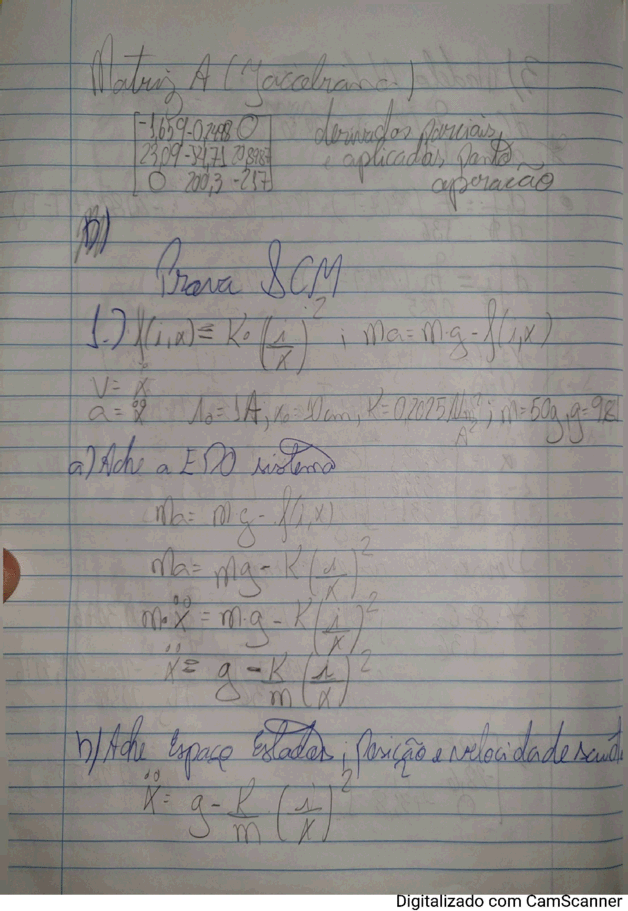 Matriz A (Jacobiana)
-1,659 -0,2498 0
23,09 -32,71
0 200,3 -217
derivadas parciais
e aplicadas ponto
operação
b)
Prova SCM
1.) f(i,x) = K·(i/x)²; ma = m·g - f(i,x)
V = ẋ
a = ẍ i₀ = 1A, x₀ = 10cm, K = 0,2025 Nm²/A²; m = 50g, g = 9,8
a) Ache a EDO sistema
ma = mg - f(i,x)
ma = mg - K(i/x)²
m·ẍ = m·g - K(i/x)²
ẍ = g - K/m (i/x)²
b) Ache Espaço Estados; posição e velocidade
ẍ = g - K/m (i/x)²
Digitalizado com CamScanner